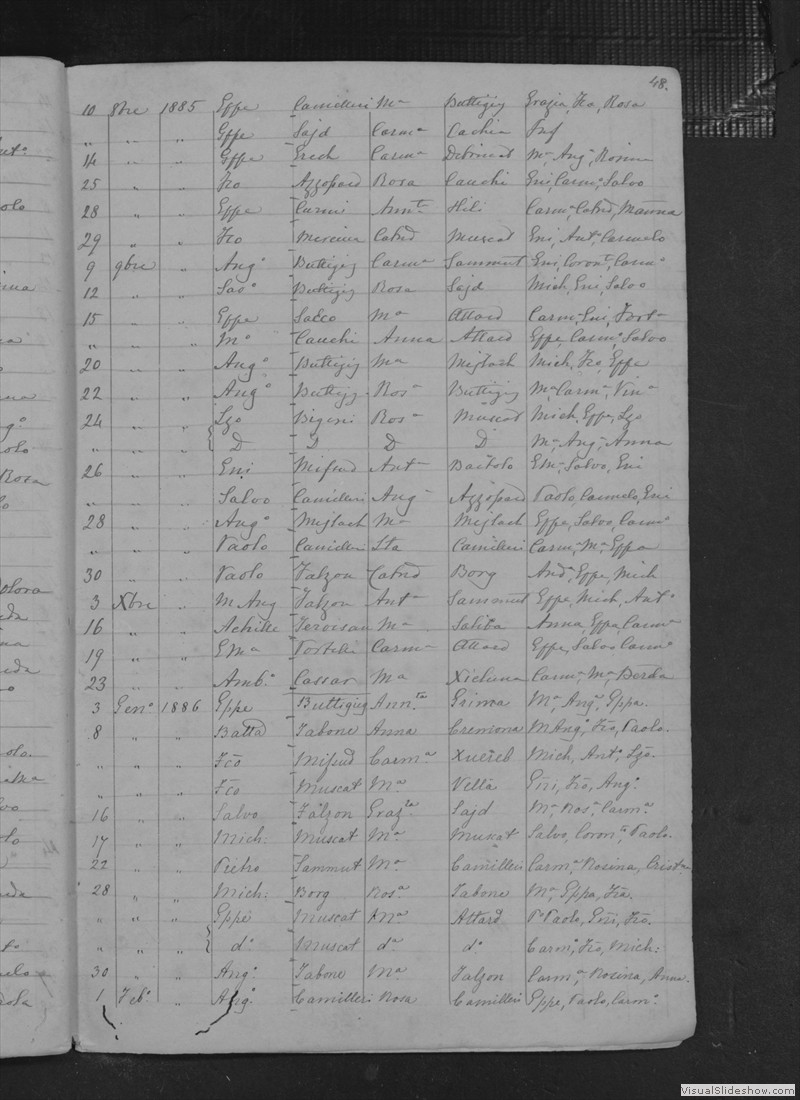 48.
10 8bre 1885 Gppe Camilleri Ma Buttigieg Grazia, Fco, Rosa
" " " Gppe Sajd Carma Cachia Inf
14 " " Gppe Grech Carma Debrincat Ma Anga Rosina
25 " " Fco Azzopard Rosa Cauchi Eni, Carmo Salvo
28 " " Gppe Curmi Annta Hili Carmo Catnd, Marina
29 " " Fco Mercieca Catnd Muscat Eni, Anto, Carmelo
9 9bre " Ango Buttigieg Carma Sammut Eni, Coronto, Carmo
12 " " Buttigieg Rosa Sajd Mich, Eni, Salvo
15 " " Gppe Sacco Ma Attard Carmo Eni, Forto
" " " Mo Cauchi Anna Attard Gppe, Carmo Salvo
20 " " Ango Buttigieg Ma Mizlach Mich, Fco, Gppe
22 " " Ango Buttigg Rosa Buttigieg Ma Carma Vina
24 " " Lzo Bigeni Rosa Muscat Mich, Gppe, Lzo
" " " D D D D Ma Anga Anna
26 " " Eni Mifsud Anta Bartolo Ema Salvo, Eni
" " " Salvo Camilleri Anga Azzopard Paolo, Carmelo, Eni
28 " " Ango Mizlach Ma Mizlach Gppe, Salvo, Carmo
" " " Paolo Camilleri Lta Camilleri Carma Ma Gppa
30 " " Paolo Falzon Catnd Borg Anda, Gppe, Mich
3 Xbre " M Ang Falzon Anta Sammut Gppe, Mich, Anto
16 " " Achille Ferrisan Ma Saliba Anna, Gppe, Carma
19 " " Ema Portelli Carma Attard Gppe, Salvo, Carmo
23 " " Ambo Cassar Ma Xicluna Carma Ma
3 Geno 1886 Gppe Buttigieg Annta Grima Ma, Anga, Gppa.
8 " " Batta Tabone Anna Cremona M Ango, Fco, Paolo.
" " " Fco Mifsud Carma Xuereb Mich, Anto, Lzo.
" " " Fco Muscat Ma Vella Eni, Fco, Ango.
16 " " Salvo Falzon Grazia Sajd Ma, Rosa, Carma.
17 " " Mich: Muscat Ma Muscat Salvo, Corono, Paolo.
22 " " Pietro Sammut Ma Camilleri Carma, Rosina, Crista.
28 " " Mich: Borg Rosa Tabone Ma, Gppa, Fca.
" " " Gppe Muscat Ma Attard Po Paolo, Eni, Fco.
" " " do Muscat da do Carmo, Fco, Mich:
30 " " Ango Tabone Ma Falzon Carma, Rosina, Anna.
1 Febo " Ango Camilleri Rosa Camilleri Gppe, Paolo, Carmo.
VisualSlideshow.com